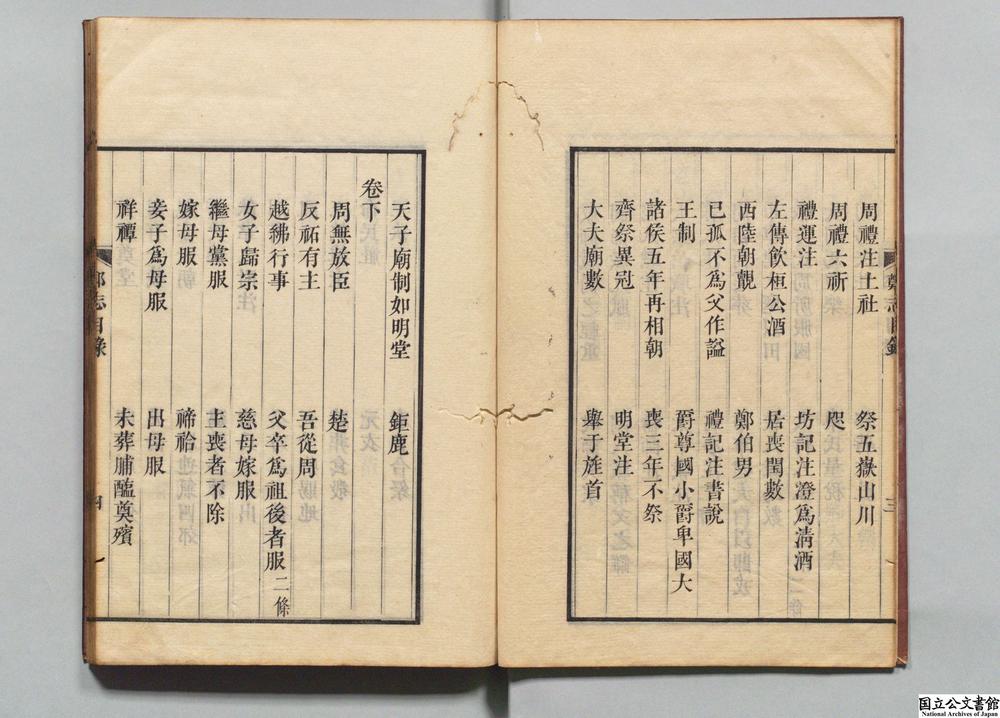 周禮注土社　祭五嶽山川
周禮六祈　咫
禮運注　坊記注澄爲清酒
左傳飲桓公酒　居喪閏數
西陸朝覿　鄭伯男
已孤不爲父作謚　禮記注書說
王制　爵尊國小爵卑國大
諸侯五年再相朝　喪三年不祭
齊祭異冠　明堂注
大夫廟數　舉于旌首
天子廟制如明堂　鉅鹿
卷下
周無放臣　楚
反祏有主　吾從周
越紼行事　父卒爲祖後者服二條
女子歸宗　慈母嫁服
繼母黨服　主喪者不除
嫁母服　禘祫
妾子爲母服　出母服
祥禫　未葬脯醢奠殯
鄭志目錄
四
国立公文書館
National Archives of Japan